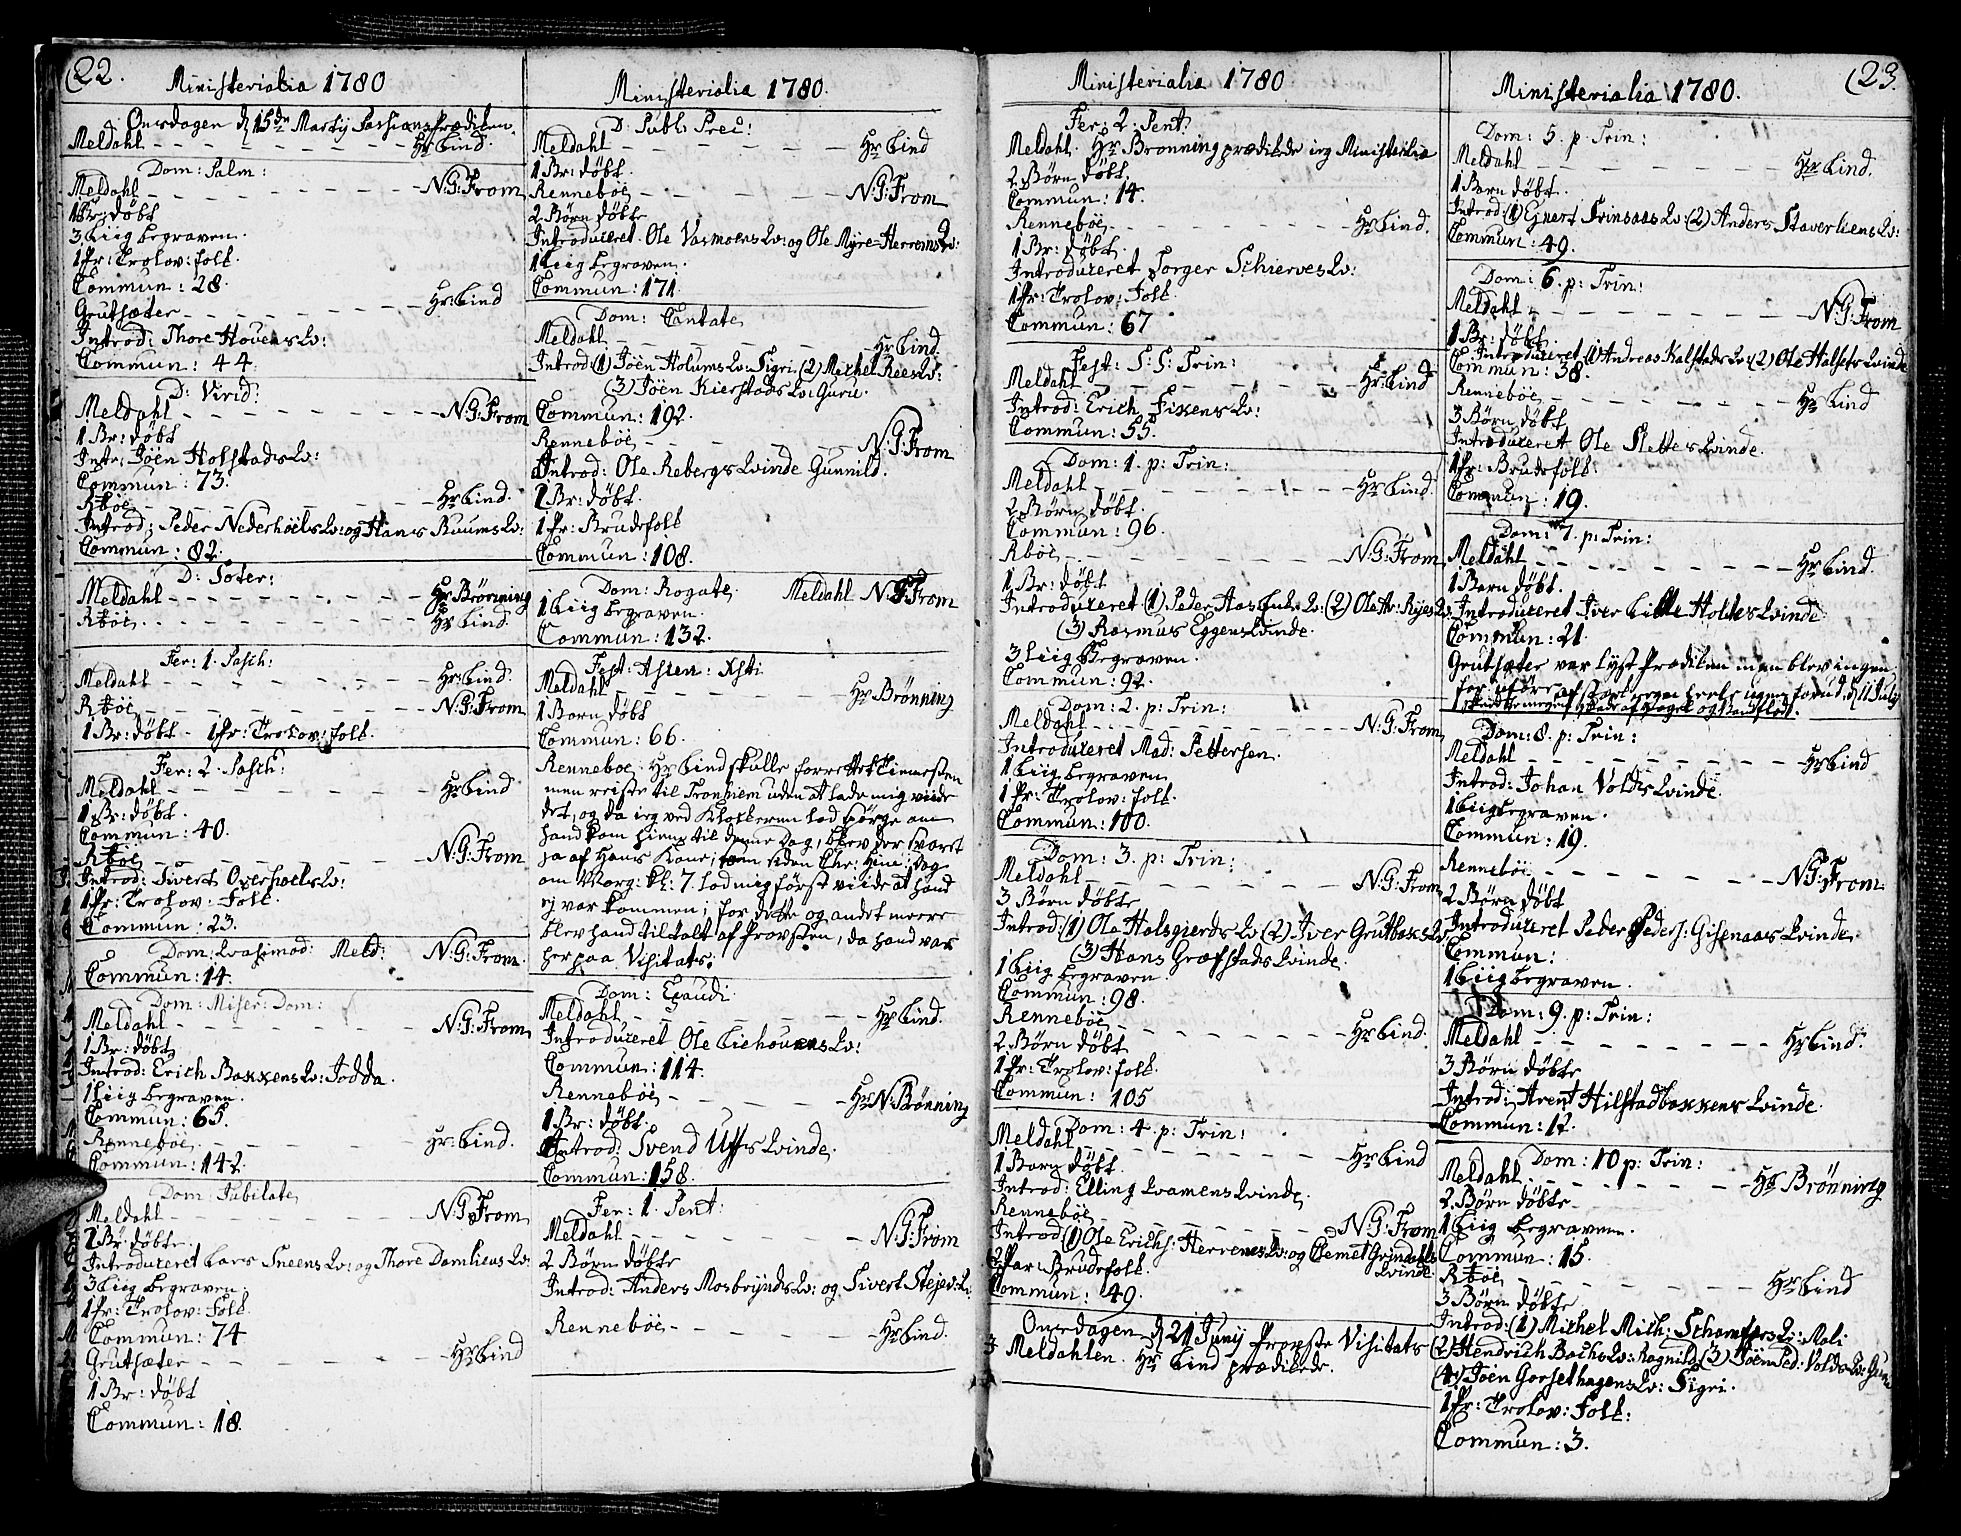 22.
Ministerialia 1780
Onsdagen d 15de Martij Passions Prædiken.
Meldahl - - - Hr Lind.
Dom: Palm:
Meldahl - - - N: G: From
1 Br: døbt
3 Liig begraven.
1 Pr: Trolov: folk.
Commun: 28.
Grutsæter - - - Hr: Lind
Introd: Thore Hovens Qv:
Commun: 44.
D: Virid:
Meldahl - - - N: G: From
1 Br: døbt
Intr: Jöen Holstads Qv:
Commun: 73.
Rböe - - - Hr Lind.
Introd: Peder Nederhoels Qv: og Hans Buums Qv:
Commun: 82.
D: Soter:
Meldahl - - - Hr Brönning
Rböe - - - Hr Lind.
Fer: 1. Pasch:
Meldahl - - - Hr: Lind.
Rböe - - - N: G: From
1 Br: døbt - 1 Pr: Trolov: folk.
Fer: 2. Pasch:
Meldahl - - - Hr Lind
1 Br: døbt.
Commun: 40.
Rböe - - - N: G: From
Introd: Sivert Overhoels Qv:
1 Pr: Trolov: Folk.
Commun: 23.
Dom: Qvasimod: Meld: N: G: From.
Commun: 14.
Dom: Miser: Dom:
Meldahl - - - N: G: From
1 Br: døbt
Introd: Erich Bakkens Qv: Jodda.
1 Liig begraven.
Commun: 65.
Renneböe - - - Hr: Lind.
Commun: 142.
Dom: Jubilate
Meldahl - - - N: G: From
2 Br: døbte
Introduceret Lars Sneens Qv: og Thore Damliens Qv:
3 Liig begraven
1 Pr: Trolov: Folk.
Commun: 74
Grutsæter - - - Hr Lind
1 Br: døbt
Commun: 18.
Ministerialia 1780.
D: Publ: Prec:
Meldahl - - - Hr Lind
1 Br: døbt.
Renneböe - - - N: G: From
2 Börn døbte
Introduceret Ole Vasmoens Qv: og Ole Myre-Herrems Qv:
1 Liig begraven.
Commun: 171.
Dom: Cantate
Meldahl - - - Hr Lind.
Introd: (1) Jöen Holums Qv: Sigri. (2) Michel Rees Qv:
(3) Jöen Kierstads Qv: Guru.
Commun: 192.
Renneböe - - - N: G: From
Introd: Ole Rebergs Qvinde Gunnild.
2 Br: døbt.
1 Pr: Brudefolk
Commun: 108.
Dom: Rogate Meldahl N: G: From
1 Liig begraven.
Commun: 132.
Fest: Ascen: Xsti
Meldahl - - - Hr Brönning
1 Barn døbt
Commun: 66.
Renneboe. Hr Lind skulle forrettet Tienesten
men reiste til Tronhiem uden at lade mig viide
det, og da ieg ved Klokkeren lod spörge om
hand kom hiem til denne Dag, blev der svaret
ja af hans Kone, som siden Chr: Him: Dag
om Morg: Kl: 7. lod mig først viide at hand
ej var kommen; for dette og andet meere
blev hand tiltalt af Provsten, da hand var
her paa Visitats.
Dom: Exaudi
Meldahl - - - Hr Lind.
Introduceret Ole Liehouens Qv:
Commun: 114.
Renneböe - - - Hr N: Brönning
1 Br: døbt.
Introd: Svend Uffs Qvinde.
Commun: 158.
Fer: 1. Pent:
Meldahl - - - N: G: From
2 Börn døbte
Introd: Anders Mosbrynds Qv: og Sivert Stejes Qv:
Renneböe - - - Hr Lind.
Ministerialia 1780
Fer: 2. Pent:
Meldahl. Hr Brønning prædikede ieg Ministerlia
2 Börn døbt.
Commun: 14.
Renneböe - - - Hr Lind.
1 Br: døbt.
Introduceret Torger Schierves Qv:
1 Pr: Trolov: Folk.
Commun: 67
Fest: S: S: Trin:
Meldahl - - - Hr: Lind
Introd: Erich Fixens Qv:
Commun: 55.
Dom: 1. p: Trin:
Meldahl - - - Hr Lind.
2 Börn døbt.
Commun: 96.
Rböe - - - N: G: From
1 Br: døbt
Introduceret (1) Peder Qv: (2) Ole Hr: Ryes Qv:
(3) Rasmus Eggens Qvinde.
3 Liig Begraven.
Commun: 92.
Dom: 2. p: Trin:
Meldahl - - - N: G: From
Introduceret Mad: Pettersen.
1 Liig begraven
1 Pr: Trolov: folk.
Commun: 100.
Dom: 3. p: Trin:
Meldahl - - - N: G: From
3 Börn døbte
Introd: (1) Ole Halsgierds Qv: (2) Iver Grutbaks Qv:
(3) Hans Græfstads Qvinde
1 Liig begraven
Commun: 98.
Renneböe - - - Hr Lind.
2 Börn døbt
1 Pr: Trolov: folk.
Commun: 105
Dom: 4. p: Trin:
Meldahl - - - Hr Lind
1 Barn døbt.
Introd: Elling Qvamens Qvinde.
Renneböe - - - N: G: From
Introd (1) Ole Erichs: Herrenes Qv: og Clemet Grindahls
Qvinde
2 Par Brudefolk.
Commun: 49.
Onsdagen d 21 Junij Propste Visitats
I Meldahlen. Hr Lind prædikede.
23.
Ministerialia 1780.
Dom: 5. p: Trin:
Meldahl - - - Hr Lind.
1 Barn døbt.
Introd: (1) Ejnert Trinsaas Qv: (2) Anders Staverliens Qv:
Commun: 49.
Dom: 6. p: Trin:
Meldahl - - - N: G: From
1 Br: døbt.
Introduceret (1) Andreas Kalstads Qv: (2) Ole Halsets Qvinde
Commun: 38.
Renneböe - - - Hr Lind
3 Börn døbt
Introduceret Ole Slettes Qvinde.
1 Pr: Brudefolk.
Commun: 19.
Dom: 7. p: Trin:
Meldahl - - - Hr Lind.
1 Barn døbt.
Introduceret Iver Lille Holtes Qvinde
Commun: 21.
Grutsæter var lyst Prædiken men blev ingen
for uföre af stort regn heele ugen forud, d 11 Julij
Dom: 8. p: Trin:
Meldahl - - - Hr Lind
Introd: Johan Volds Qvinde.
1 Liig begraven.
Commun: 19.
Renneböe - - - N: G: From.
2 Börn døbt
Introduceret Peder Peders: Gisenaas Qvinde
Commun:
1 Liig begraven.
Dom: 9. p: Trin:
Meldahl - - - Hr Lind.
3 Börn døbte
Introd: Arent Hilstadbakkens Qvinde
Commun: 12.
Dom: 10 p: Trin:
Meldahl - - - Hr Brönning
2 Börn døbte
1 Liig begraven.
Commun: 15.
Rböe - - - Hr Lind
3 Börn døbte
Introd: (1) Michel Mich: Qv: Mali
(2) Hendrich Bachs Qv: Ragnild (3) Jöen Ped: Volds Qv: Guru
(4) Jöen Gorsethagens Qv: Sigri.
1 Pr: Trolov: Folk:
Commun: 3.